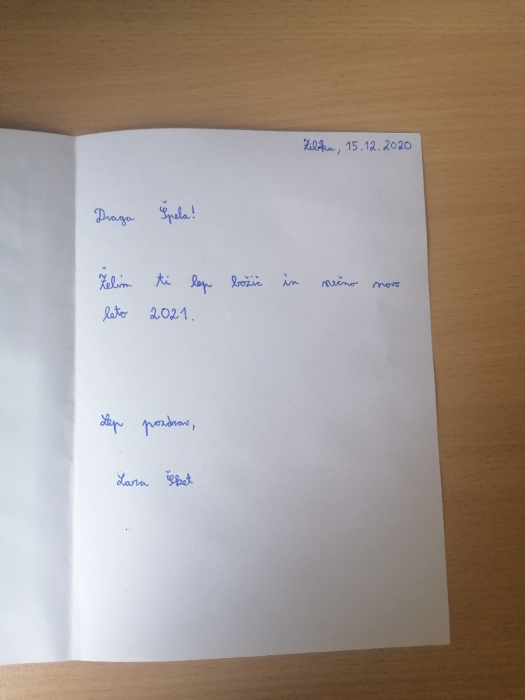 Zibika, 15.12.2020
Draga Špela!
Želim ti lep božič in srečno novo
leto 2021.
Lep pozdrav,
Lara Šket